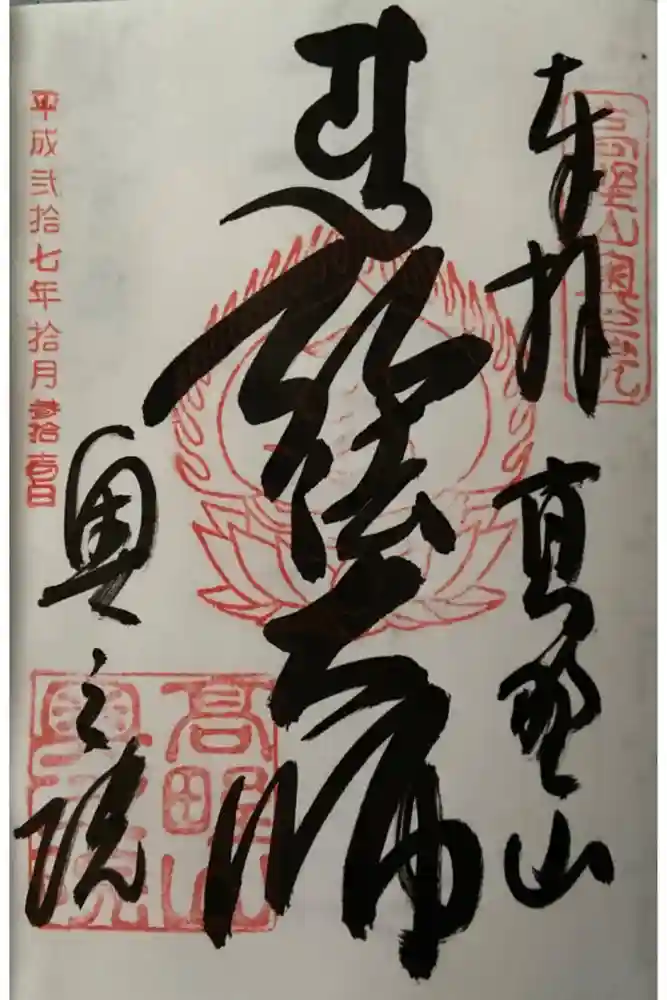 奉拝 高野山
高野山奥之院
弘法大師
奥之院
平成弐拾七年拾月参拾壱日
高野山
奥之院